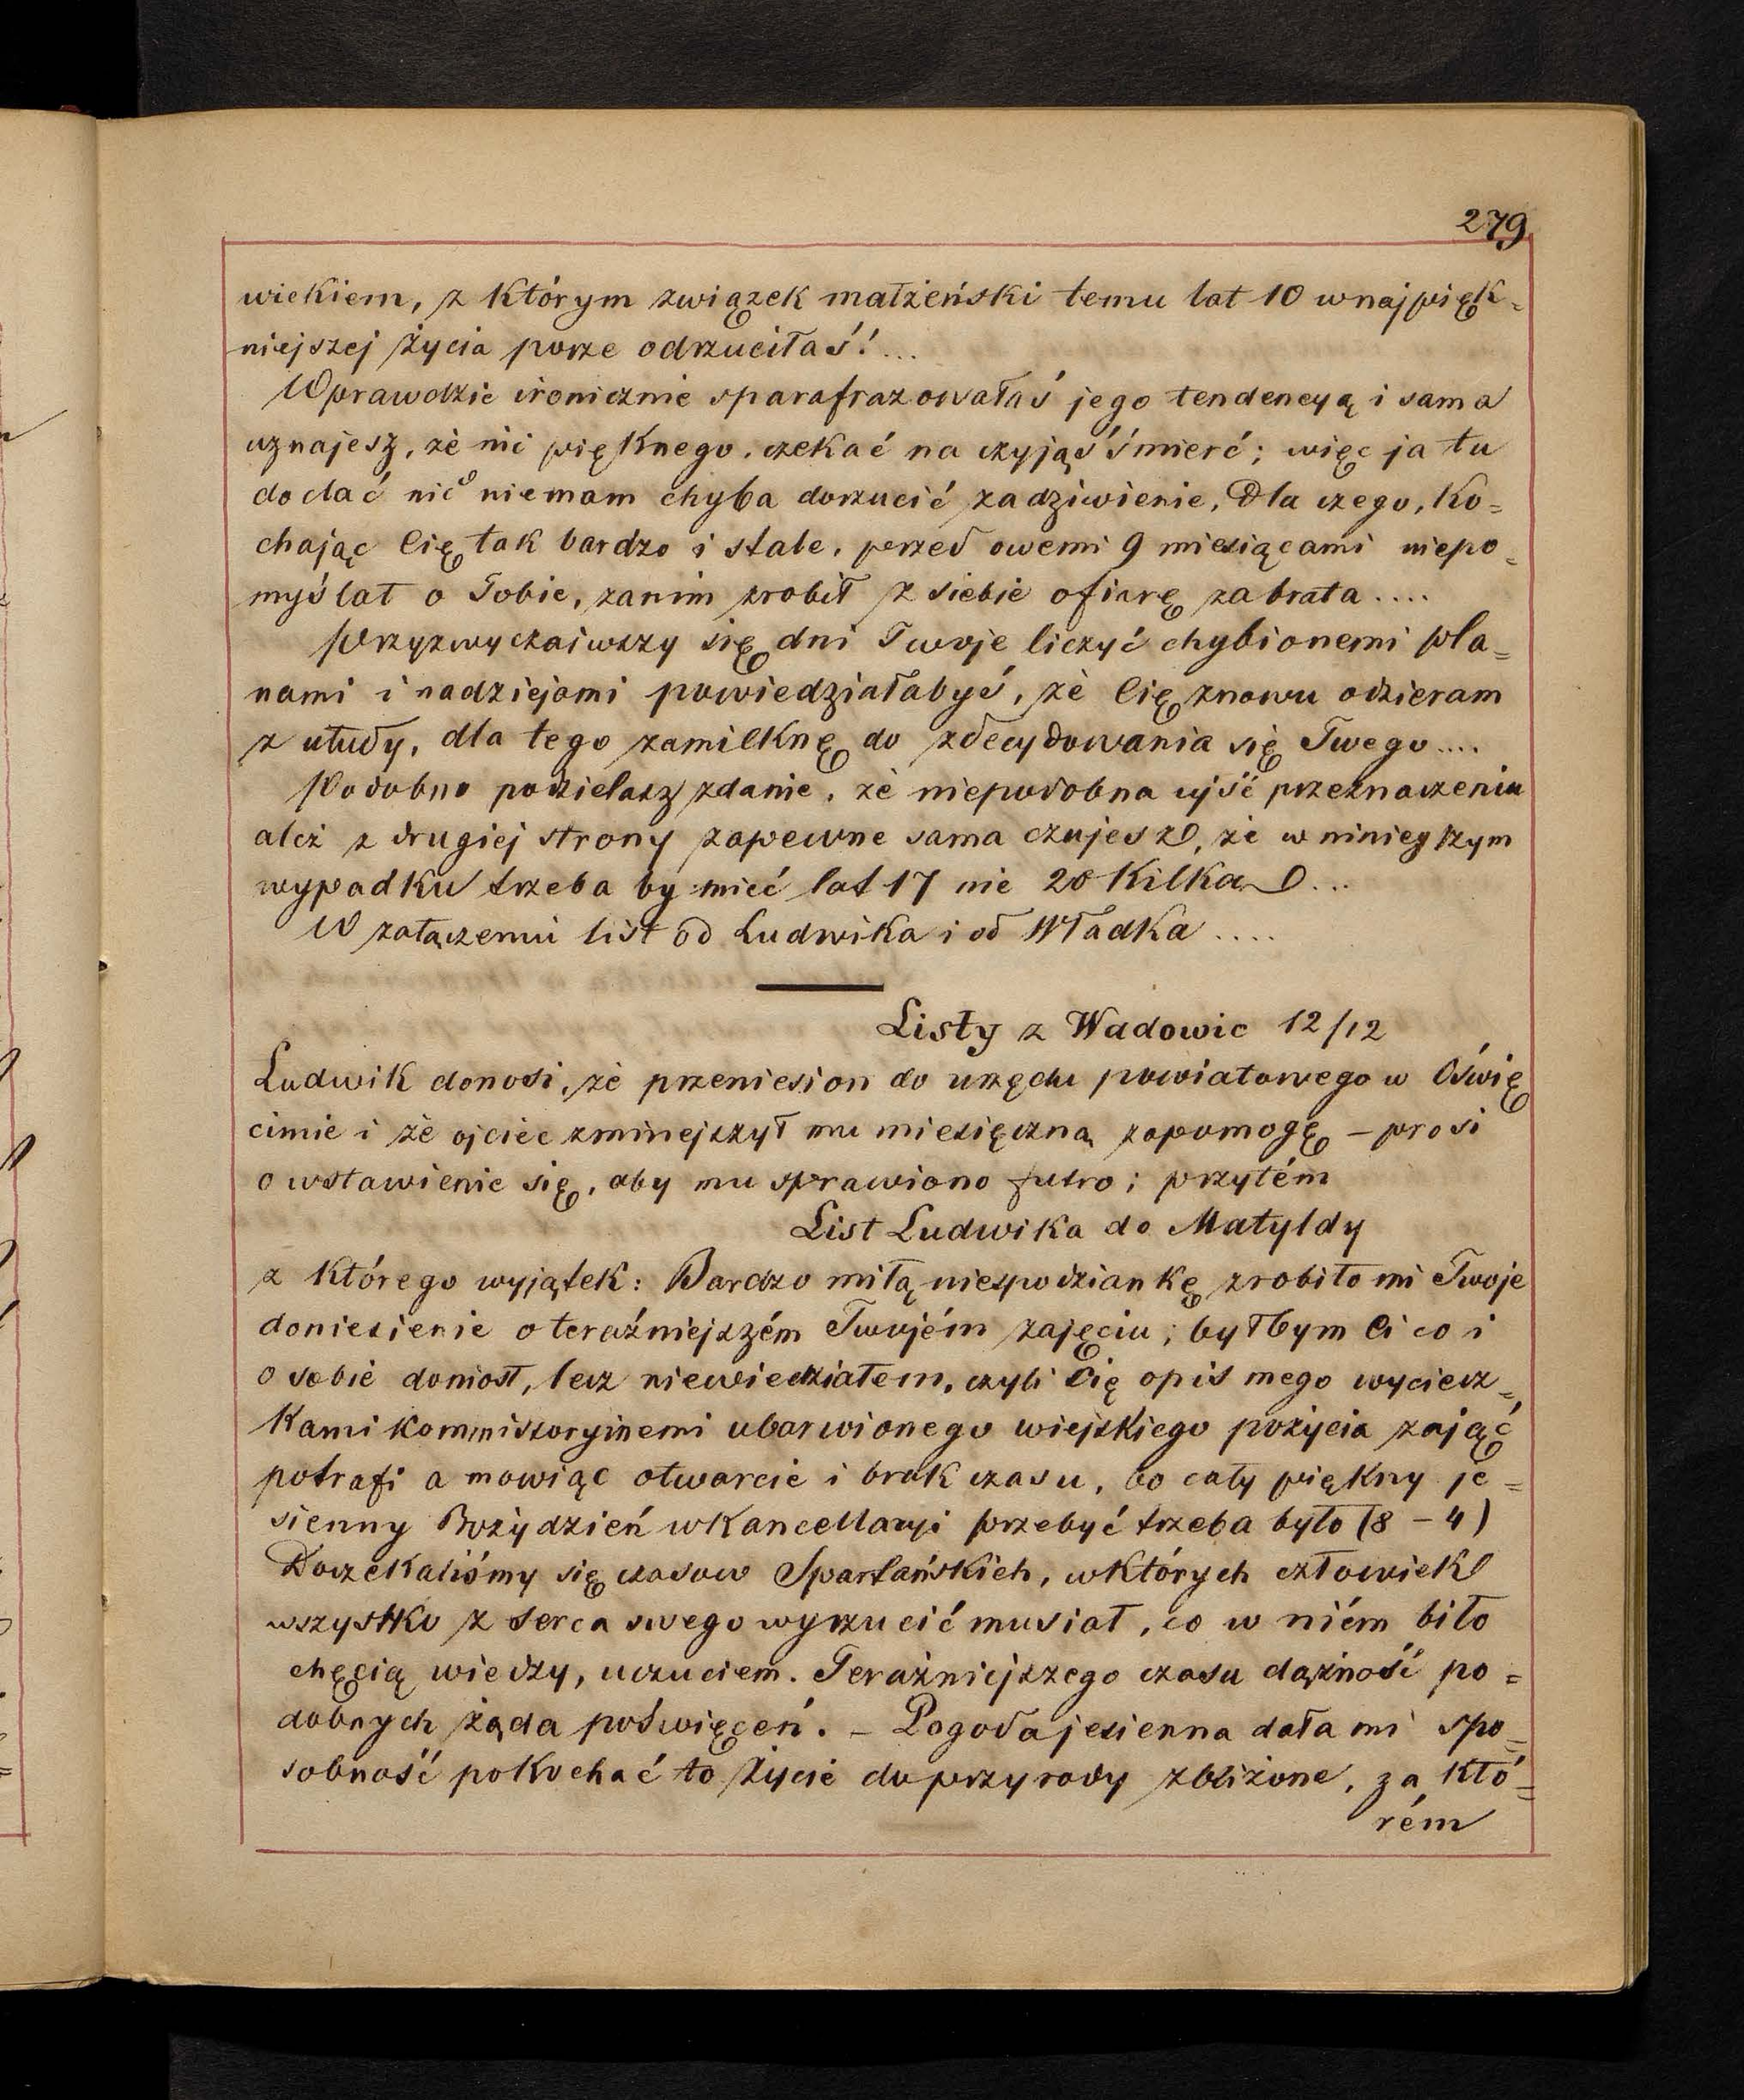 279
wiekiem, z którym związek małżeński temu lat 10 w najpięk=
niejszej życia porze odrzuciłaś!...
Wprawdzie ironicznie sparafrazowałaś jego tendencyą i sama
uznajesz, że nic pięknego, czekać na czyjąś śmierć; więc ja tu
dodać nic niemam chyba dorzucić zadziwienie, Dla czego, ko=
chając Cię tak bardzo i stale, przed owemi 9 miesiącami niepo=
myślał o Tobie, zanim zrobił z siebie ofiarę za brata....
Przyzwyczaiwszy się dni Twoje liczyć chybionemi pla=
nami i nadziejami powiedziałabyś, że Cię znowu odzieram
z ułudy, dla tego zamilknę do zdecydowania się Twego....
Podobno podzielasz zdanie, że niepodobna ujść przeznaczeniu
aleź z drugiej strony zapewne sama czujesz, że w niniejszym
wypadku trzeba by mieć lat 17 nie 20 kilka...
W załączeniu list od Ludwika i od Władka....
Listy z Wadowic 12/12
Ludwik donosi, że przeniesion do urzędu powiatowego w Oświę
cimie i że ojciec zmniejszył mu miesięczną zapomogę – prosi
o wstawienie się, aby mu sprawiono futro; przytém
List Ludwika do Matyldy
z którego wyjątek: Bardzo miłą niespodziankę zrobiło mi Twoje
doniesienie o teraźniejszém Twojém zajęciu; byłbym Ci co i
o sobie doniosł, lecz niewiedziałem, czyli Cię opis mego wyciecz=
kami kommissoryjnemi ubarwionego wiejskiego pożycia zająć
potrafi a mowiąc otwarcie i brak czasu, bo cały piękny je=
sienny Boży dzień w kancellaryi przebyć trzeba było (8 – 4)
Doczekaliśmy się czasow Spartańskich, w których człowiek
wszystko z serca swego wyrzucić musiał, co w niém biło
chęcią wiedzy, uczuciem. Teraźniejszego czasu dążność po=
dobnych żąda poświęceń. – Pogoda jesienna dała mi spo=
sobność pokochać to życie do przyrody zbliżone, za któ=
rém